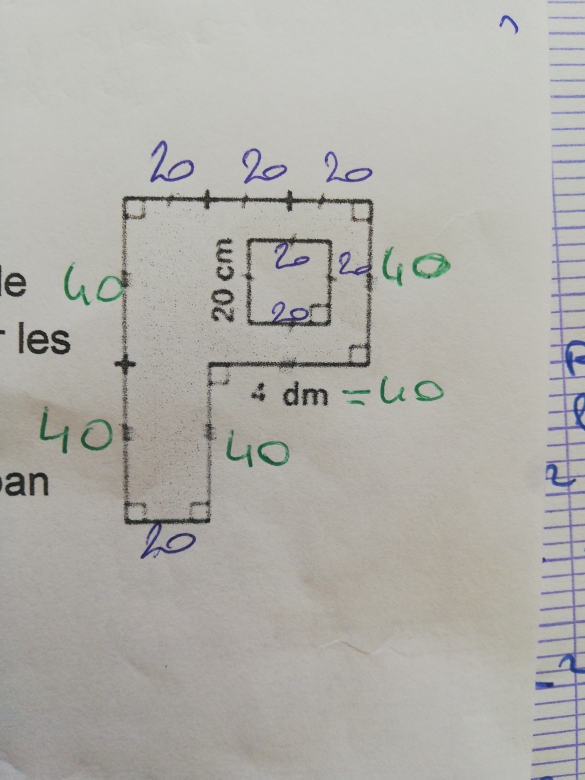 20 20 20
le
40
20 cm
20
20
40
20
r les
4 dm = 40
40
40
pan
20
2
2